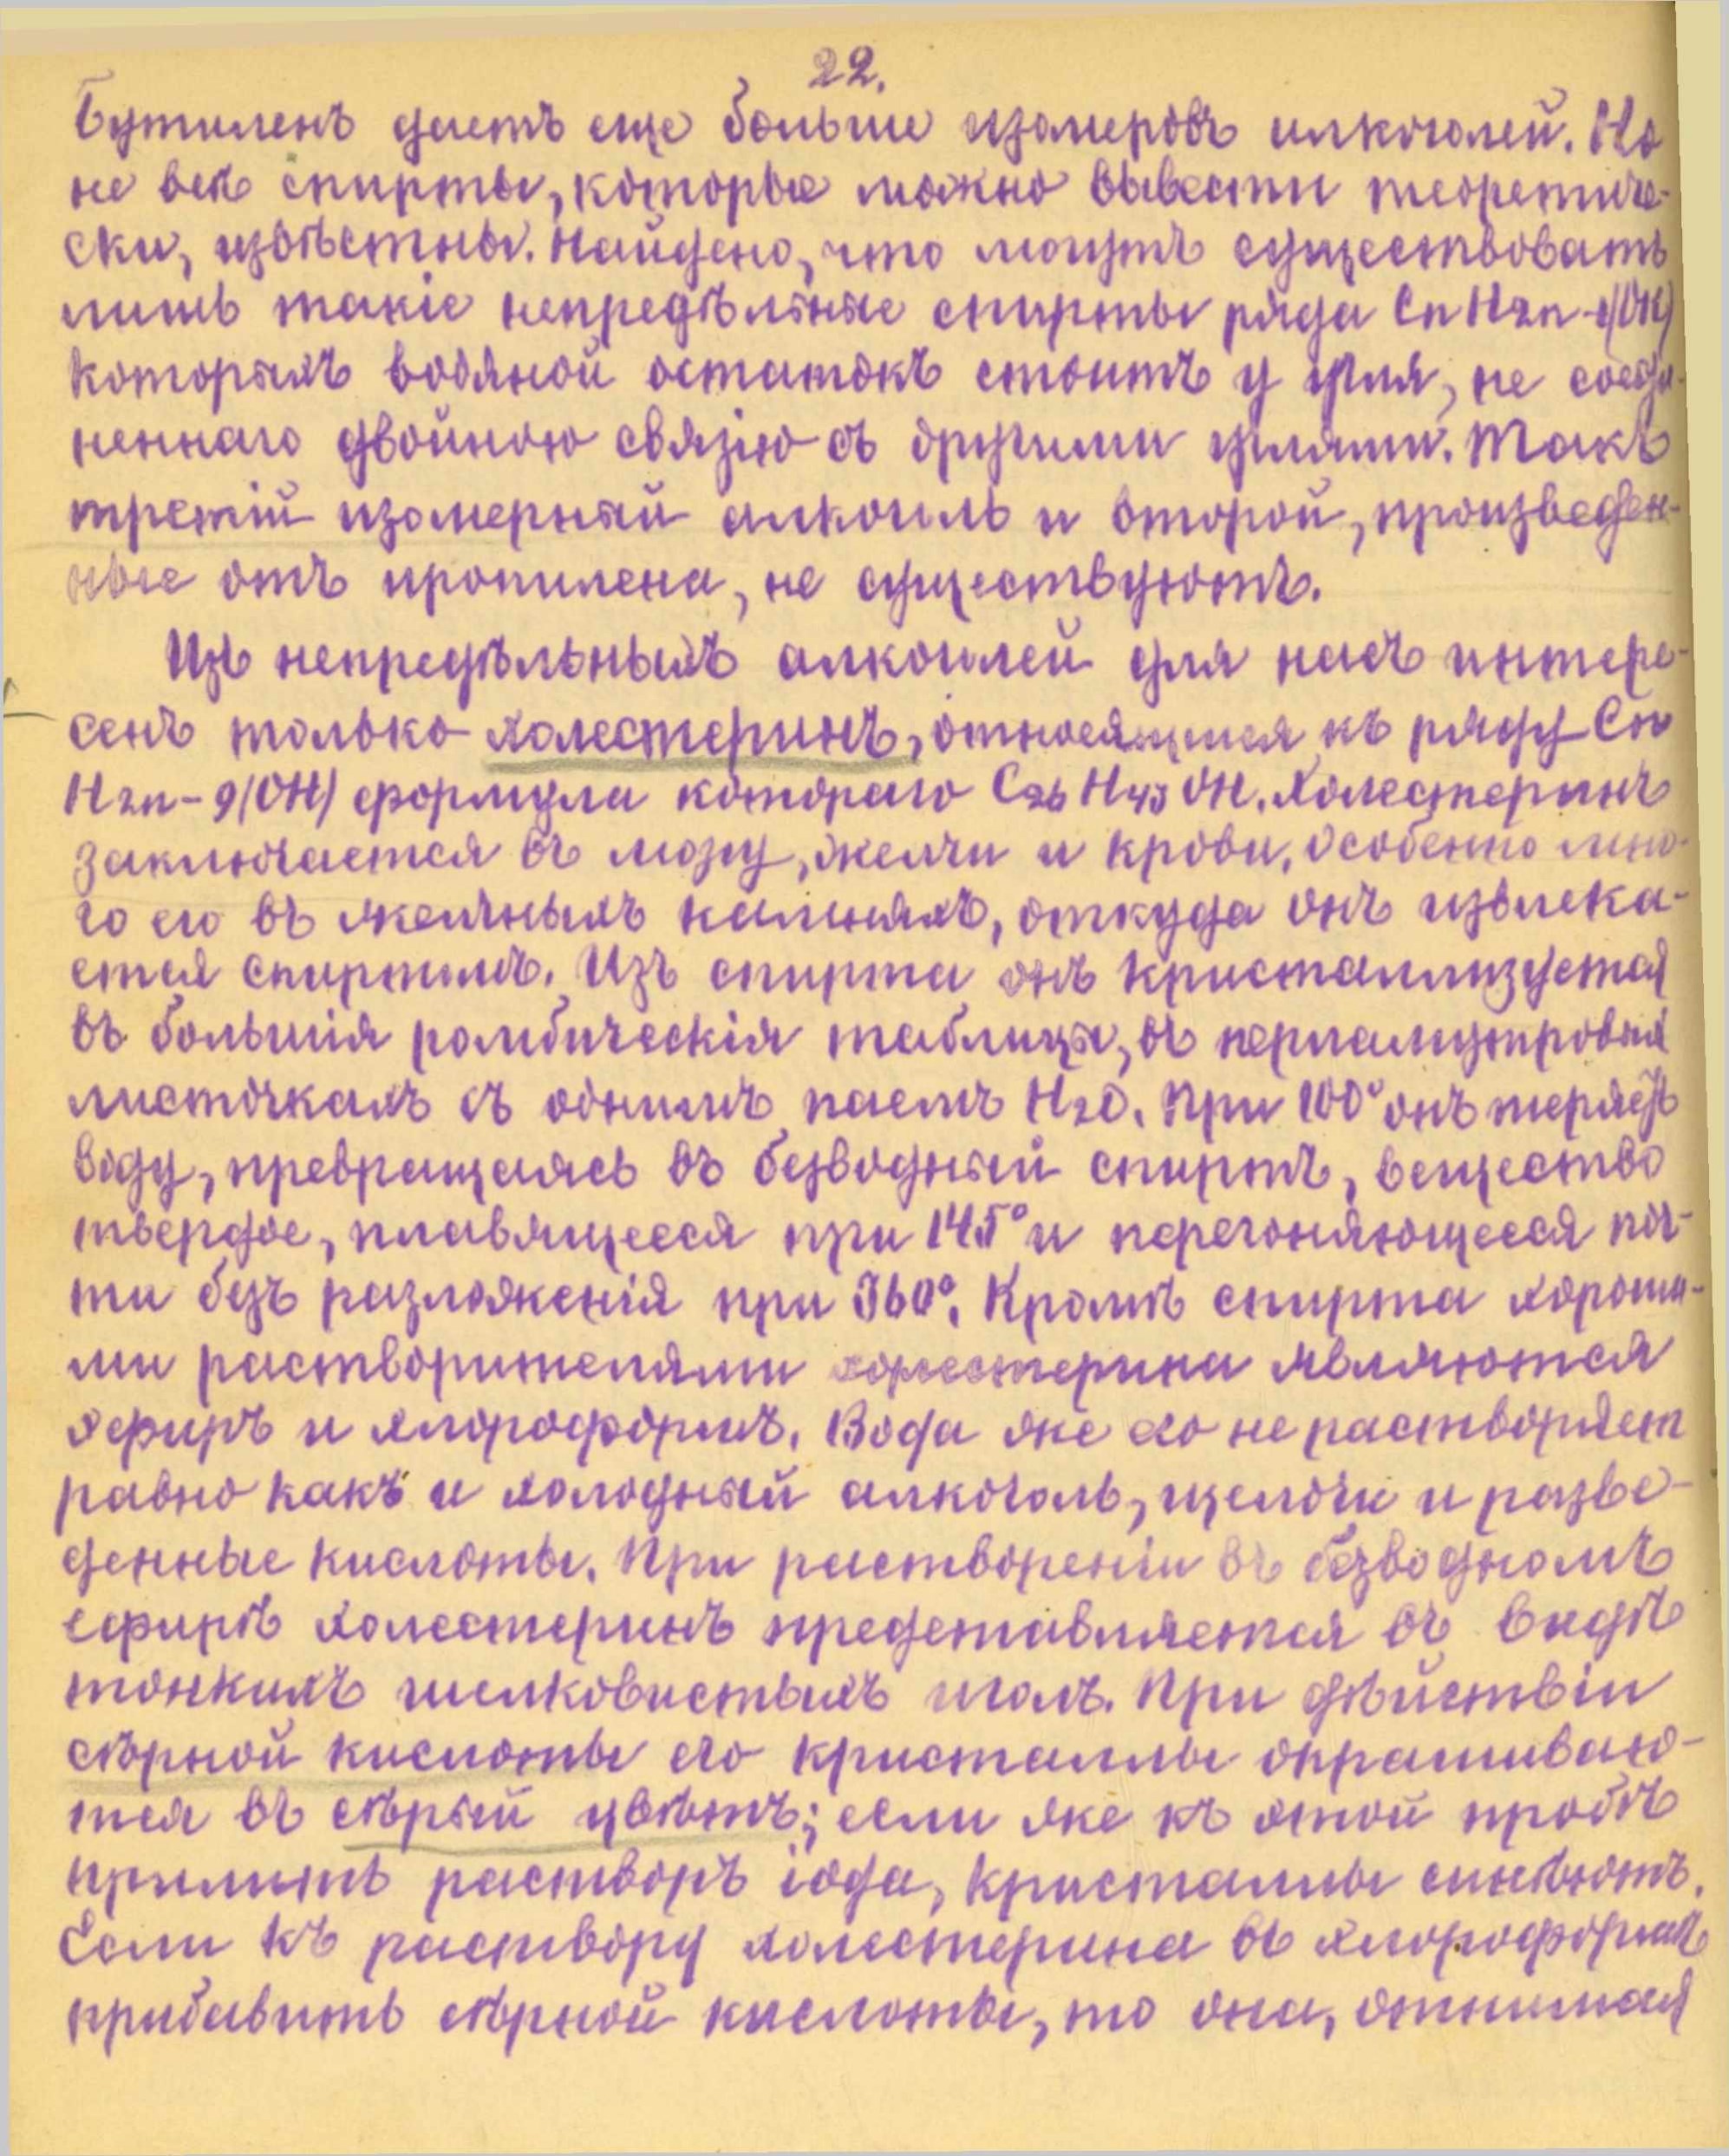 22.
Бутиленъ даетъ еще больше изомеровъ алкоголей. Но
не всѣ спирты, которые можно вывести теоретиче-
ски, извѣстны. Найдено, что могутъ существовать
лишь такіе непредѣльные спирты ряда CnH2n-1(OH)
которыхъ водяной остатокъ стоитъ у угля, не соеди-
неннаго двойною связію съ другими углями. Такъ
третій изомерный алкоголь и второй, произведен-
ные отъ пропилена, не существуютъ.
Изъ непредѣльныхъ алкоголей для насъ интере-
сенъ только холестеринъ, относящійся къ ряду Cn
H2n-9(OH) формула котораго C26H43OH. Холестеринъ
заключается въ мозгу, желчи и крови, особенно мно-
го его въ желчныхъ камняхъ, откуда онъ извлека-
ется спиртомъ. Изъ спирта онъ кристаллизуется
въ большія ромбическія таблицы, въ перламутровыхъ
листочкахъ съ однимъ паемъ H2O. При 100° онъ теряетъ
воду, превращаясь въ безводный спиртъ, вещество
твердое, плавящееся при 145° и перегоняющееся поч-
ти безъ разложенія при 360°. Кромѣ спирта хороши-
ми растворителями холестерина являются
эфиръ и хлороформъ. Вода же его не растворяет
равно какъ и холодный алкоголь, щелочи и разве-
денные кислоты. При раствореніи въ безводномъ
ефирѣ холестеринъ представляется въ видѣ
тонкихъ шелковистыхъ иголъ. При дѣйствіи
сѣрной кислоты его кристаллы окрашиваю-
тся въ сѣрый цвѣтъ; если же къ этой пробѣ
прилить растворъ іода, кристаллы синѣютъ.
Если къ раствору холестерина въ хлороформѣ
прибавить сѣрной кислоты, то она, отнимая